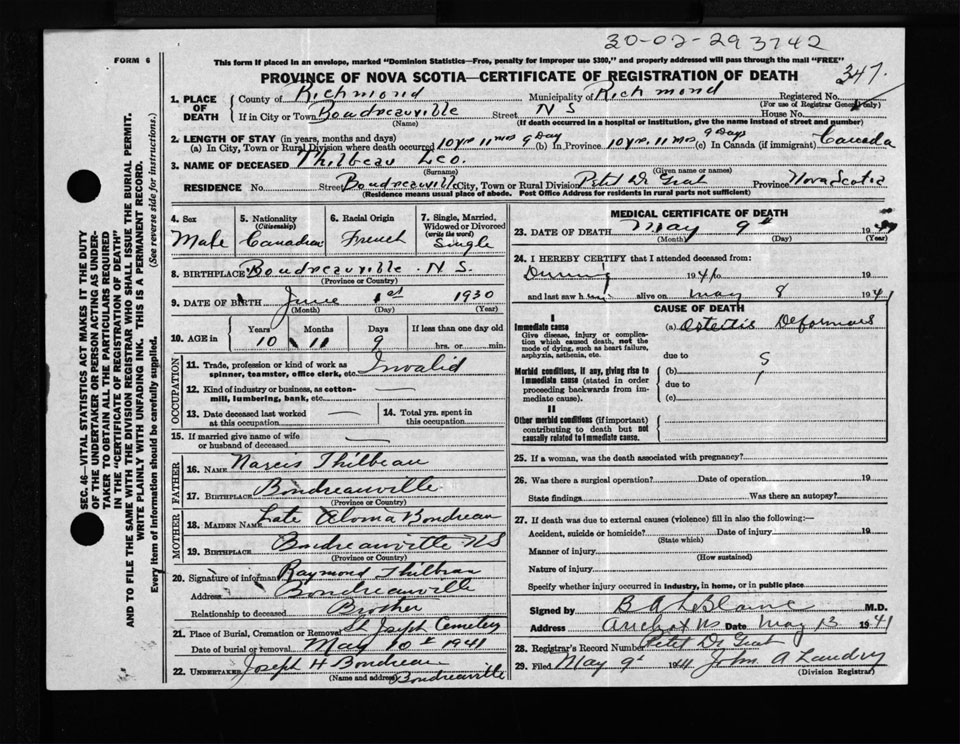 30-02-293742
FORM 6
This form if placed in an envelope, marked "Dominion Statistics—Free, penalty for improper use $300," and properly addressed will pass through the mail "FREE"
PROVINCE OF NOVA SCOTIA—CERTIFICATE OF REGISTRATION OF DEATH
347.
1. PLACE OF DEATH County of Richmond Municipality of Richmond Registered No.
(For use of Registrar General only)
If in City or Town Boudreauville Street N S House No.
(Name) (If death occurred in a hospital or institution, give the name instead of street and number)
2. LENGTH OF STAY (in years, months and days)
(a) In City, Town or Rural Division where death occurred 10 yrs. 11 mos 9 Day (b) In Province 10 yrs. 11 mos 9 Days (c) In Canada (if immigrant) Canada
3. NAME OF DECEASED Thilbeau Leo.
(Surname) (Given name or names)
RESIDENCE No. Street Boudreauville City, Town or Rural Division Petet D Grat Province Nova Scotia
(Residence means usual place of abode. Post Office Address for residents in rural parts not sufficient)
4. Sex Male
5. Nationality (Citizenship) Canadian
6. Racial Origin French
7. Single, Married, Widowed or Divorced (write the word) Single
8. BIRTHPLACE Boudreauville N S.
(Province or Country)
9. DATE OF BIRTH June 1st 1930
(Month) (Day) (Year)
10. AGE in Years 10 Months 11 Days 9 If less than one day old hrs. or min.
OCCUPATION
11. Trade, profession or kind of work as spinner, teamster, office clerk, etc. Invalid
12. Kind of industry or business, as cotton-mill, lumbering, bank, etc.
13. Date deceased last worked at this occupation —
14. Total yrs. spent in this occupation
15. If married give name of wife or husband of deceased —
FATHER
16. NAME Narcis Thilbeau
17. BIRTHPLACE Boudreauville
(Province or Country)
MOTHER
18. MAIDEN NAME Late Boudreau
19. BIRTHPLACE Boudreauville NS
(Province or Country)
20. Signature of informant Raymond Thilbeau
Address Boudreauville
Relationship to deceased Brother
21. Place of Burial, Cremation or Removal St Joseph Cemetery
Date of burial or removal May 10th 1941
22. UNDERTAKER Joseph H Boudreau
(Name and address) Boudreauville
MEDICAL CERTIFICATE OF DEATH
23. DATE OF DEATH May 9th 194
(Month) (Day) (Year)
24. I HEREBY CERTIFY that I attended deceased from:
During 1940 19
and last saw him alive on May 8 1941
CAUSE OF DEATH
I
Immediate cause (a) Osteitis Deformans
Give disease, injury or complication which caused death, not the mode of dying, such as heart failure, asphyxia, asthenia, etc.
due to
Morbid conditions, if any, giving rise to immediate cause (stated in order proceeding backwards from immediate cause). (b)
due to
(c)
II
Other morbid conditions (if important) contributing to death but not causally related to immediate cause.
25. If a woman, was the death associated with pregnancy?
26. Was there a surgical operation? Date of operation 19
State findings Was there an autopsy?
27. If death was due to external causes (violence) fill in also the following:—
Accident, suicide or homicide? Date of injury 19
(State which)
Manner of injury
(How sustained)
Nature of injury
Specify whether injury occurred in industry, in home, or in public place
Signed by B A LeBlanc M.D.
Address Arichat NS Date May 13 1941
28. Registrar's Record Number Petet De Grat
29. Filed May 9th 1941 John A Landry
(Division Registrar)
SEC. 46—VITAL STATISTICS ACT MAKES IT THE DUTY
OF THE UNDERTAKER OR PERSON ACTING AS UNDER-
TAKER TO OBTAIN ALL THE PARTICULARS REQUIRED
IN THE "CERTIFICATE OF REGISTRATION OF DEATH"
AND TO FILE THE SAME WITH THE DIVISION REGISTRAR WHO SHALL ISSUE THE BURIAL PERMIT.
WRITE PLAINLY WITH UNFADING INK. THIS IS A PERMANENT RECORD.
Every item of information should be carefully supplied. (See reverse side for instructions.)